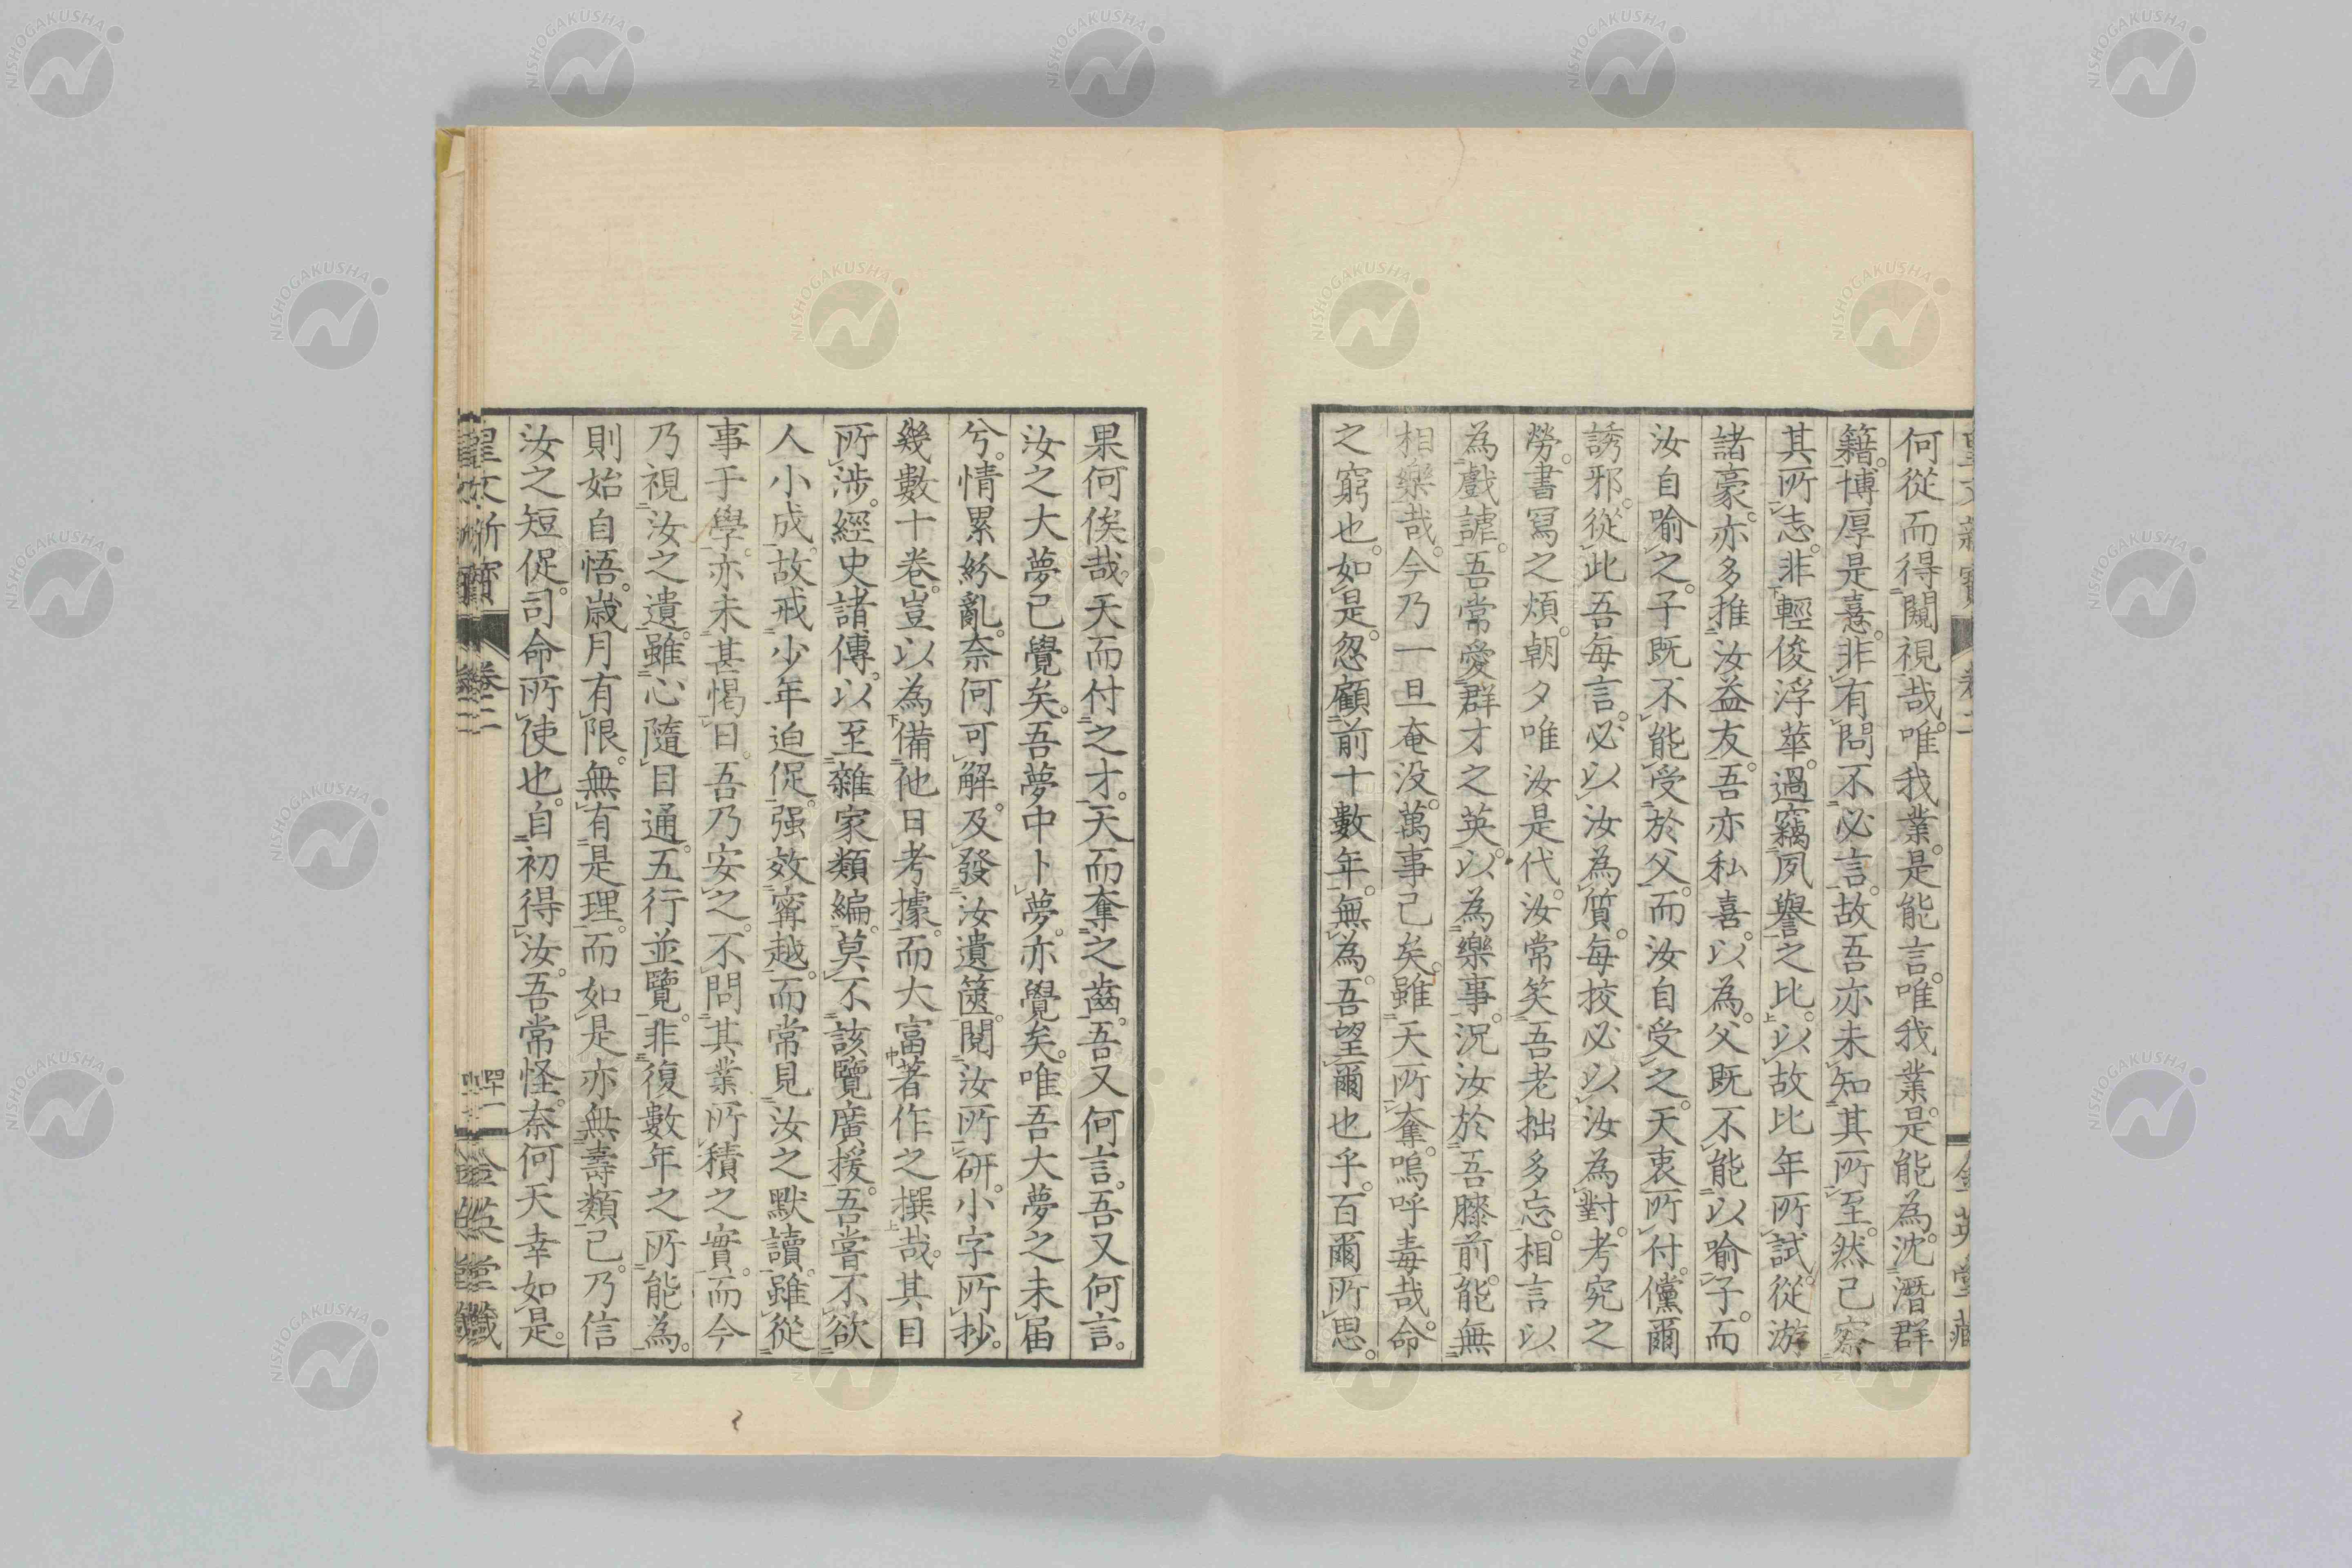 何從而得闚視哉。唯我業。是能言。唯我業。是能為。沈潛群
籍。博厚是憙。非有問不必言。故吾亦未知其所至。然己察
其所志。非輕俊浮華。過竊夙譽之比。以故比年所試。從游
諸豪。亦多推汝益友。吾亦私喜。以為。父既不能以喻子。而
汝自喻之。子既不能受於父。而汝自受之。天衷所付。儻爾
誘邪。從此吾每言。必以汝為質。每挍必以汝為對。考究之
勞。書寫之煩。朝夕唯汝是代。汝常笑吾老拙多忘。相言以
為戲謔。吾常愛群才之英。以為樂事。況汝於吾膝前。能無
相樂哉。今乃一旦奄没。萬事己矣。雖天所奪。嗚呼毒哉。命
之窮也。如是。忽顧前十數年。無為。吾望爾也乎。百爾所思。
果何俟哉。天而付之才。天而奪之齒。吾又何言。吾又何言。
汝之大夢已覺矣。吾夢中卜夢。亦覺矣。唯吾大夢之未届
兮。情累紛亂。奈何可解。及發汝遺篋。閱汝所研。小字所抄。
幾數十卷。豈以為備他日考據。而大富著作之撰哉。其目
所涉。經史諸傳。以至雜家類編。莫不該覽廣援。吾嘗不欲
人小成。故戒少年迫促。强效甯越。而常見汝之默讀。雖從
事于學。亦未甚愒日。吾乃安之。不問其業所積之實。而今
乃視汝之遺。雖心隨目通。五行並覽。非復數年之所能為。
則始自悟。歲月有限。無有是理。而如是亦無壽類已。乃信
汝之短促。司命所使也。自初得汝。吾常怪。奈何天幸如是。
卷二
四十一